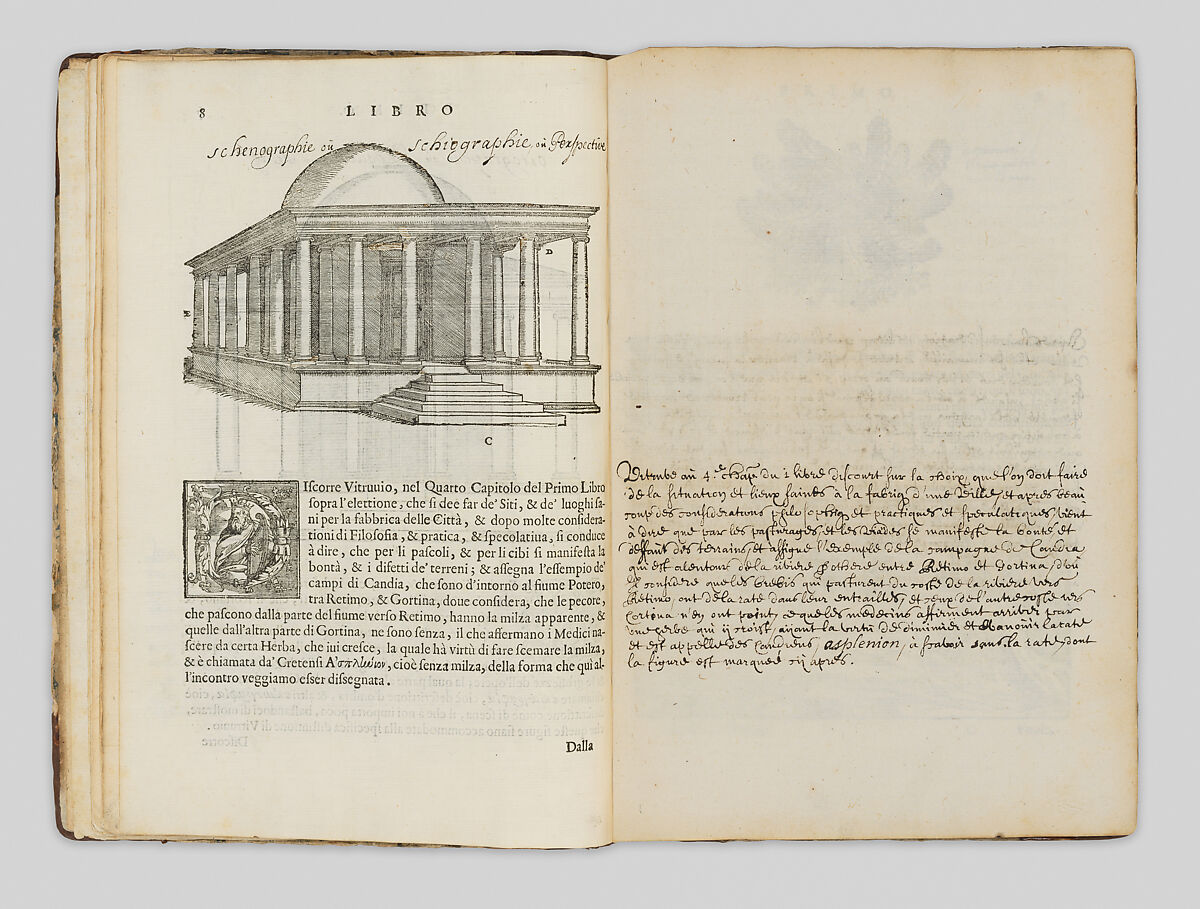 8 LIBRO
schenographie où schiographie, où Perspective
D
E
C
DIscorre Vitruuio, nel Quarto Capitolo del Primo Libro
sopra l'elettione, che si dee far de' Siti, & de' luoghi sa-
ni per la fabbrica delle Città, & dopo molte considera-
tioni di Filosofia, & pratica, & specolatiua, si conduce
à dire, che per li pascoli, & per li cibi si manifesta la
bontà, & i difetti de' terreni; & assegna l'essempio de'
campi di Candia, che sono d'intorno al fiume Potero,
tra Retimo, & Gortina, doue considera, che le pecore,
che pascono dalla parte del fiume verso Retimo, hanno la milza apparente, &
quelle dall'altra parte di Gortina, ne sono senza, il che affermano i Medici na-
scere da certa Herba, che iui cresce, la quale hà virtù di fare scemare la milza,
& è chiamata da' Cretensi A'σπλωίον, cioè senza milza, della forma che quì al-
l'incontro veggiamo esser dissegnata.
Dalla
Vitruve au 4.e chap du 1 livre discourt sur la choix, que l'on doit faire
de la situation et lieux saines à la fabriq d'une Ville, et apres beau
coup des considerations philosophiq et practiques et speculatiques, vient
à dire que par les pasturages, et les viades se manifeste la bonté et
deffaut des terrains, et assigne l'exemple de la campagne de Candia
qui est alentour de la riviere Pothere entre Retimo et Gortina, d'où
considere que les brebis qui pasturent du costé de la riviere vers
Retimo, ont de la rate dans leur entrailles, et ceux de l'autre costé vers
Cortona n'en ont point, ce que les medecins affirment arriver par
une herbe qui y croist, aijant la vertu de diminuer et evanouir la rate
et est appellé des Candiens, asplenion, à scavoir sans la rate, dont
la figure est marquée cij apres.